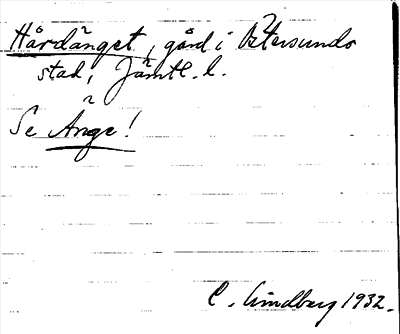 Hårdänget, gård i Östersunds
stad, Jämtl. l.
Se Änge!
C. Lindberg 1932.